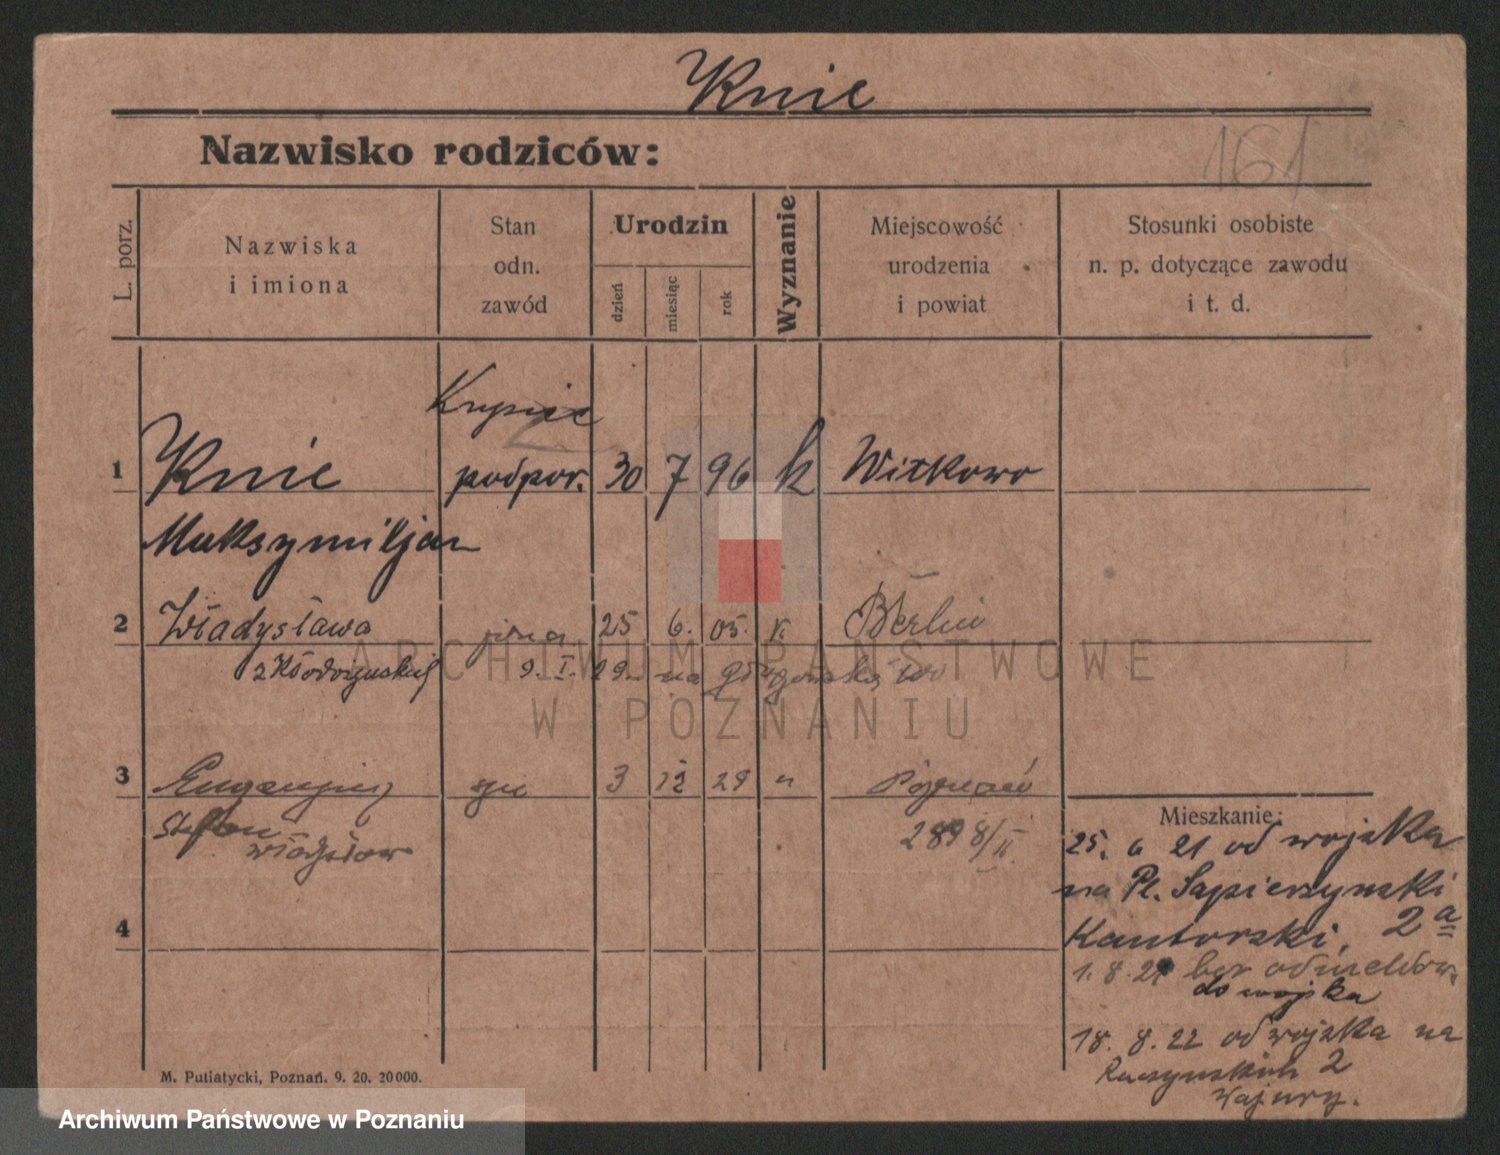 Knie
Nazwisko rodziców:
161
L. porz.
Nazwiska
i imiona
Stan
odn.
zawód
Urodzin
dzień
miesiąc
rok
Wyznanie
Miejscowość
urodzenia
i powiat
Stosunki osobiste
n. p. dotyczące zawodu
i t. d.
1 Knie podpor. 30 7 96 k Witkowo
Maksymiljan
2 Władysława 25 6. 05. k. Berlin
9. I. 29. na
3 3 12 29 " Poznań
Stefan
Władysław
4
Mieszkanie:
25. 6 21 od wojska
na Pl. Sapierzynski
Kantorski, 2a
1. 8. 21 bez odmeldow.
do wojska
18. 8. 22 od wojska na
Raczynskich 2
M. Putiatycki, Poznań. 9. 20. 20000.
ARCHIWUM PAŃSTWOWE
W POZNANIU
Archiwum Państwowe w Poznaniu